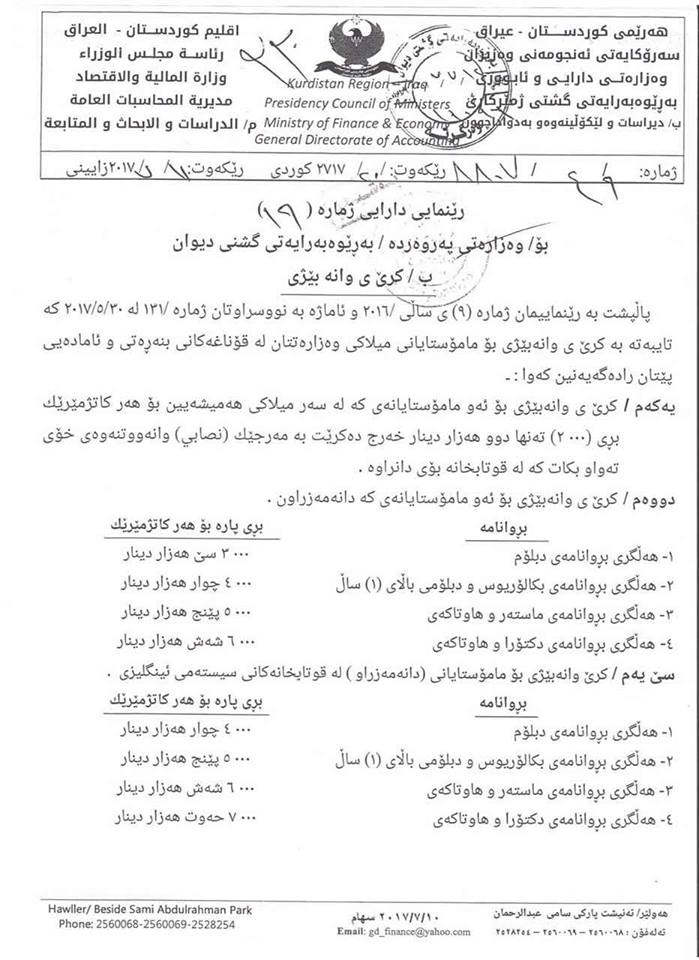 هەرێمی کوردستان - عیراق
سەرۆکایەتی ئەنجومەنی وەزیران
وەزارەتی دارایی و ئابووری
بەڕێوەبەرایەتی گشتی ژمێرکاری
ب/ دیراسات و لێکۆڵینەوەو بەدواداچوون
Kurdistan Region – Iraq
Presidency Council of Ministers
Ministry of Finance & Economy
General Directorate of Accounting
اقليم كوردستان - العراق
رئاسة مجلس الوزراء
وزارة المالية والاقتصاد
مديرية المحاسبات العامة
م/ الدراسات و الابحاث و المتابعة
ژمارە: ڕێکەوت: ٢٧١٧ کوردی ڕێکەوت: ٢٠١٧ زایینی
ڕێنمایی دارایی ژمارە (١٩)
بۆ/ وەزارەتی پەروەردە / بەڕێوەبەرایەتی گشتی دیوان
ب / کرێ ی وانە بێژی
پاڵپشت بە ڕێنماییمان ژمارە (٩) ی ساڵی /٢٠١٦ و ئاماژە بە نووسراوتان ژمارە /١٣١ لە ٢٠١٧/٥/٣٠ کە
تایبەتە بە کرێ ی وانەبێژی بۆ مامۆستایانی میلاکی وەزارەتتان لە قۆناغەکانی بنەڕەتی و ئامادەیی
پێتان ڕادەگەیەنین کەوا : ـ
یەکەم / کرێ ی وانەبێژی بۆ ئەو مامۆستایانەی کە لە سەر میلاکی هەمیشەیین بۆ هەر کاتژمێرێك
بڕی (٢٠٠٠) تەنها دوو هەزار دینار خەرج دەکرێت بە مەرجێك (نصابي) وانەووتنەوەی خۆی
تەواو بکات کە لە قوتابخانە بۆی دانراوە .
دووەم/ کرێ ی وانەبێژی بۆ ئەو مامۆستایانەی کە دانەمەزراون .
بڕوانامە بڕی پارە بۆ هەر کاتژمێرێك
١- هەڵگری بڕوانامەی دبلۆم ٣٠٠٠ سێ هەزار دینار
٢- هەڵگری بڕوانامەی بکالۆریوس و دبلۆمی باڵای (١) ساڵ ٤٠٠٠ چوار هەزار دینار
٣- هەڵگری بڕوانامەی ماستەر و هاوتاکەی ٥٠٠٠ پێنج هەزار دینار
٤- هەڵگری بڕوانامەی دکتۆرا و هاوتاکەی ٦٠٠٠ شەش هەزار دینار
سێ یەم / کرێ وانەبێژی بۆ مامۆستایانی (دانەمەزراو ) لە قوتابخانەکانی سیستەمی ئینگلیزی .
بڕوانامە بڕی پارە بۆ هەر کاتژمێرێك
١- هەڵگری بڕوانامەی دبلۆم ٤٠٠٠ چوار هەزار دینار
٢- هەڵگری بڕوانامەی بکالۆریوس و دبلۆمی باڵای (١) ساڵ ٥٠٠٠ پێنج هەزار دینار
٣- هەڵگری بڕوانامەی ماستەر و هاوتاکەی ٦٠٠٠ شەش هەزار دینار
٤- هەڵگری بڕوانامەی دکتۆرا و هاوتاکەی ٧٠٠٠ حەوت هەزار دینار
هەولێر/ تەنیشت پارکی سامی عبدالرحمان
تەلەفۆن : ٢٥٦٠٠٦٨ – ٢٥٦٠٠٦٩ – ٢٥٢٨٢٥٤
٢٠١٧/٧/١٠ سهام
Email: gd_finance@yahoo.com
Hawller/ Beside Sami Abdulrahman Park
Phone: 2560068-2560069-2528254